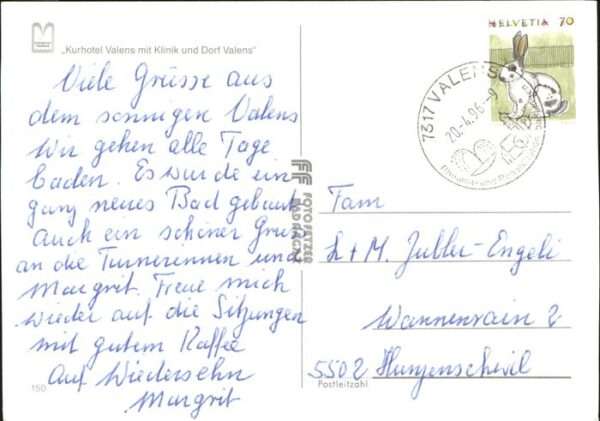 „Kurhotel Valens mit Klinik und Dorf Valens"
Viele Grüsse aus
dem sonnigen Valens
Wir gehen alle Tage
baden. Es wurde ein
ganz neues Bad gebaut
Auch ein schöner Gruss
an die Turnerinnen und
Margrit. Freue mich
wieder auf die Sitzungen
mit gutem Kaffee
Auf Wiedersehn
Margrit
150
FOTO FETZER
BAD RAGAZ
HELVETIA 70
7317 VALENS
20.4.96-9
Fam
h+M. Juller-Engeli
Wannenrain 2
5502 Hunzenschwil
Postleitzahl